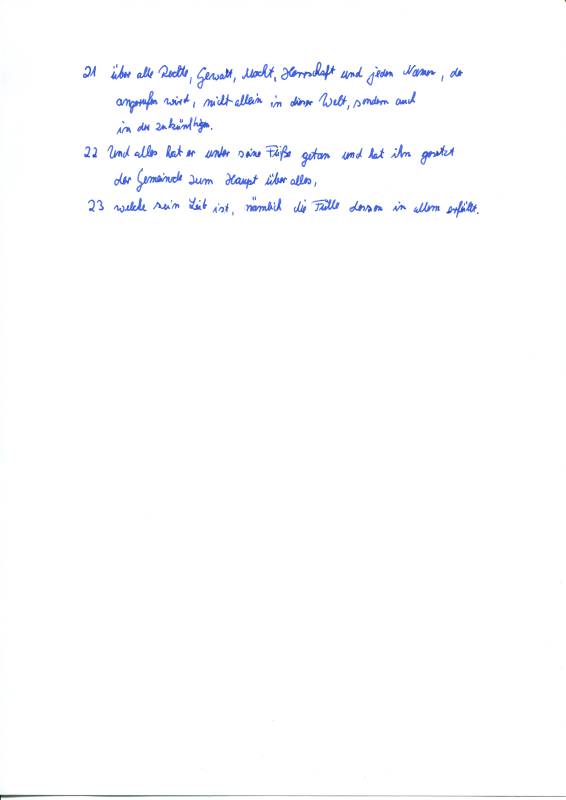 21 über alle Rechte, Gewalt, Macht, Herrschaft und jeden Namen, der
angerufen wird, nicht allein in dieser Welt, sondern auch
in der zukünftigen.
22 Und alles hat er unter seine Füße getan und hat ihn gesetzt
der Gemeinde zum Haupt über alles,
23 welche sein Leib ist, nämlich die Fülle dessen in allem erfüllt.